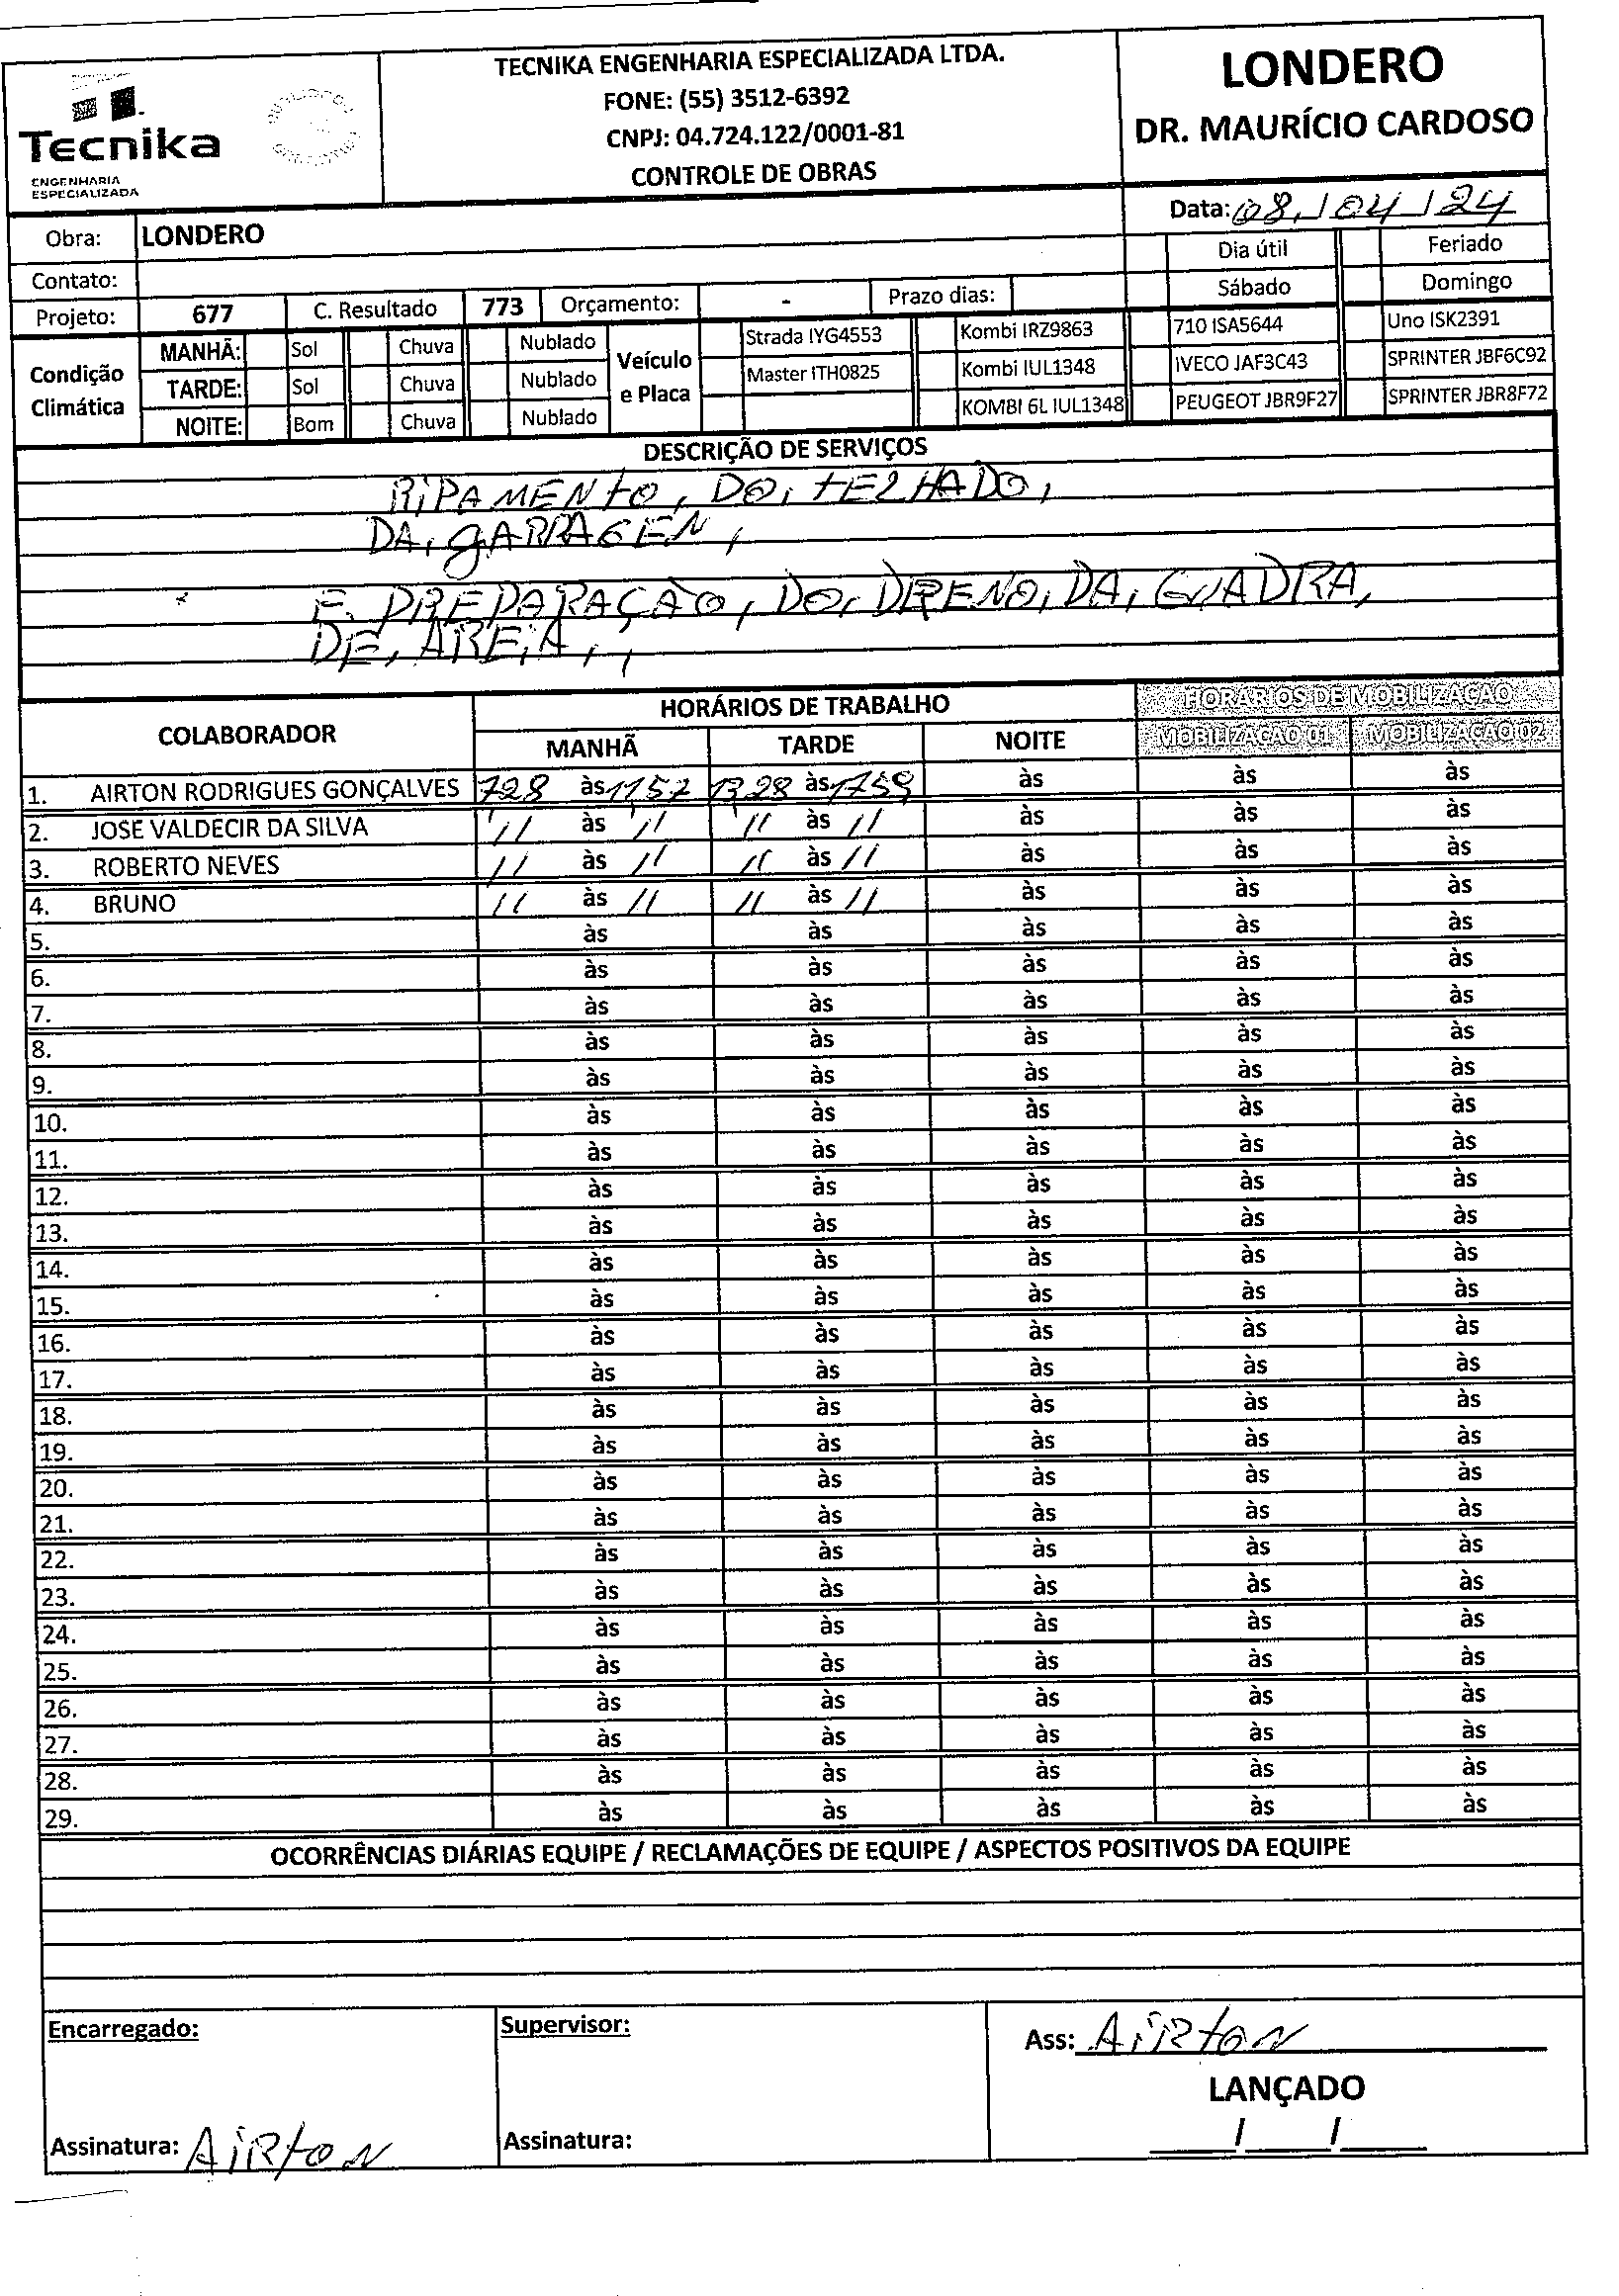 Tecnika
ENGENHARIA
ESPECIALIZADA
TECNIKA ENGENHARIA ESPECIALIZADA LTDA.
FONE: (55) 3512-6392
CNPJ: 04.724.122/0001-81
CONTROLE DE OBRAS
LONDERO
DR. MAURÍCIO CARDOSO
Data: 08/04/24
Obra: LONDERO
Dia útil Feriado
Contato:
Sábado Domingo
Projeto: 677 C. Resultado 773 Orçamento: - Prazo dias:
Condição Climática
MANHÃ: Sol Chuva Nublado
TARDE: Sol Chuva Nublado
NOITE: Bom Chuva Nublado
Veículo e Placa
Strada IYG4553 Kombi IRZ9863 710 ISA5644 Uno ISK2391
Master ITH0825 Kombi IUL1348 IVECO JAF3C43 SPRINTER JBF6C92
KOMBI 6L IUL1348 PEUGEOT JBR9F27 SPRINTER JBR8F72
DESCRIÇÃO DE SERVIÇOS
RIPAMENTO, DO, TELHADO,
DA, GARRAGEN,
E. PREPARAÇÃO, DO, DRENO, DA, QUADRA,
DE, AREIA, ,
COLABORADOR HORÁRIOS DE TRABALHO HORÁRIOS DE MOBILIZAÇÃO
MANHÃ TARDE NOITE MOBILIZAÇÃO 01 MOBILIZAÇÃO 02
1. AIRTON RODRIGUES GONÇALVES 728 às 1157 1328 às 1759 às às às
2. JOSE VALDECIR DA SILVA // às // // às // às às às
3. ROBERTO NEVES // às // // às // às às às
4. BRUNO // às // // às // às às às
5. às às às às às
6. às às às às às
7. às às às às às
8. às às às às às
9. às às às às às
10. às às às às às
11. às às às às às
12. às às às às às
13. às às às às às
14. às às às às às
15. às às às às às
16. às às às às às
17. às às às às às
18. às às às às às
19. às às às às às
20. às às às às às
21. às às às às às
22. às às às às às
23. às às às às às
24. às às às às às
25. às às às às às
26. às às às às às
27. às às às às às
28. às às às às às
29. às às às às às
OCORRÊNCIAS DIÁRIAS EQUIPE / RECLAMAÇÕES DE EQUIPE / ASPECTOS POSITIVOS DA EQUIPE
Encarregado:
Supervisor:
Ass: AIRTON
LANÇADO
___/___/___
Assinatura: AIRTON
Assinatura: